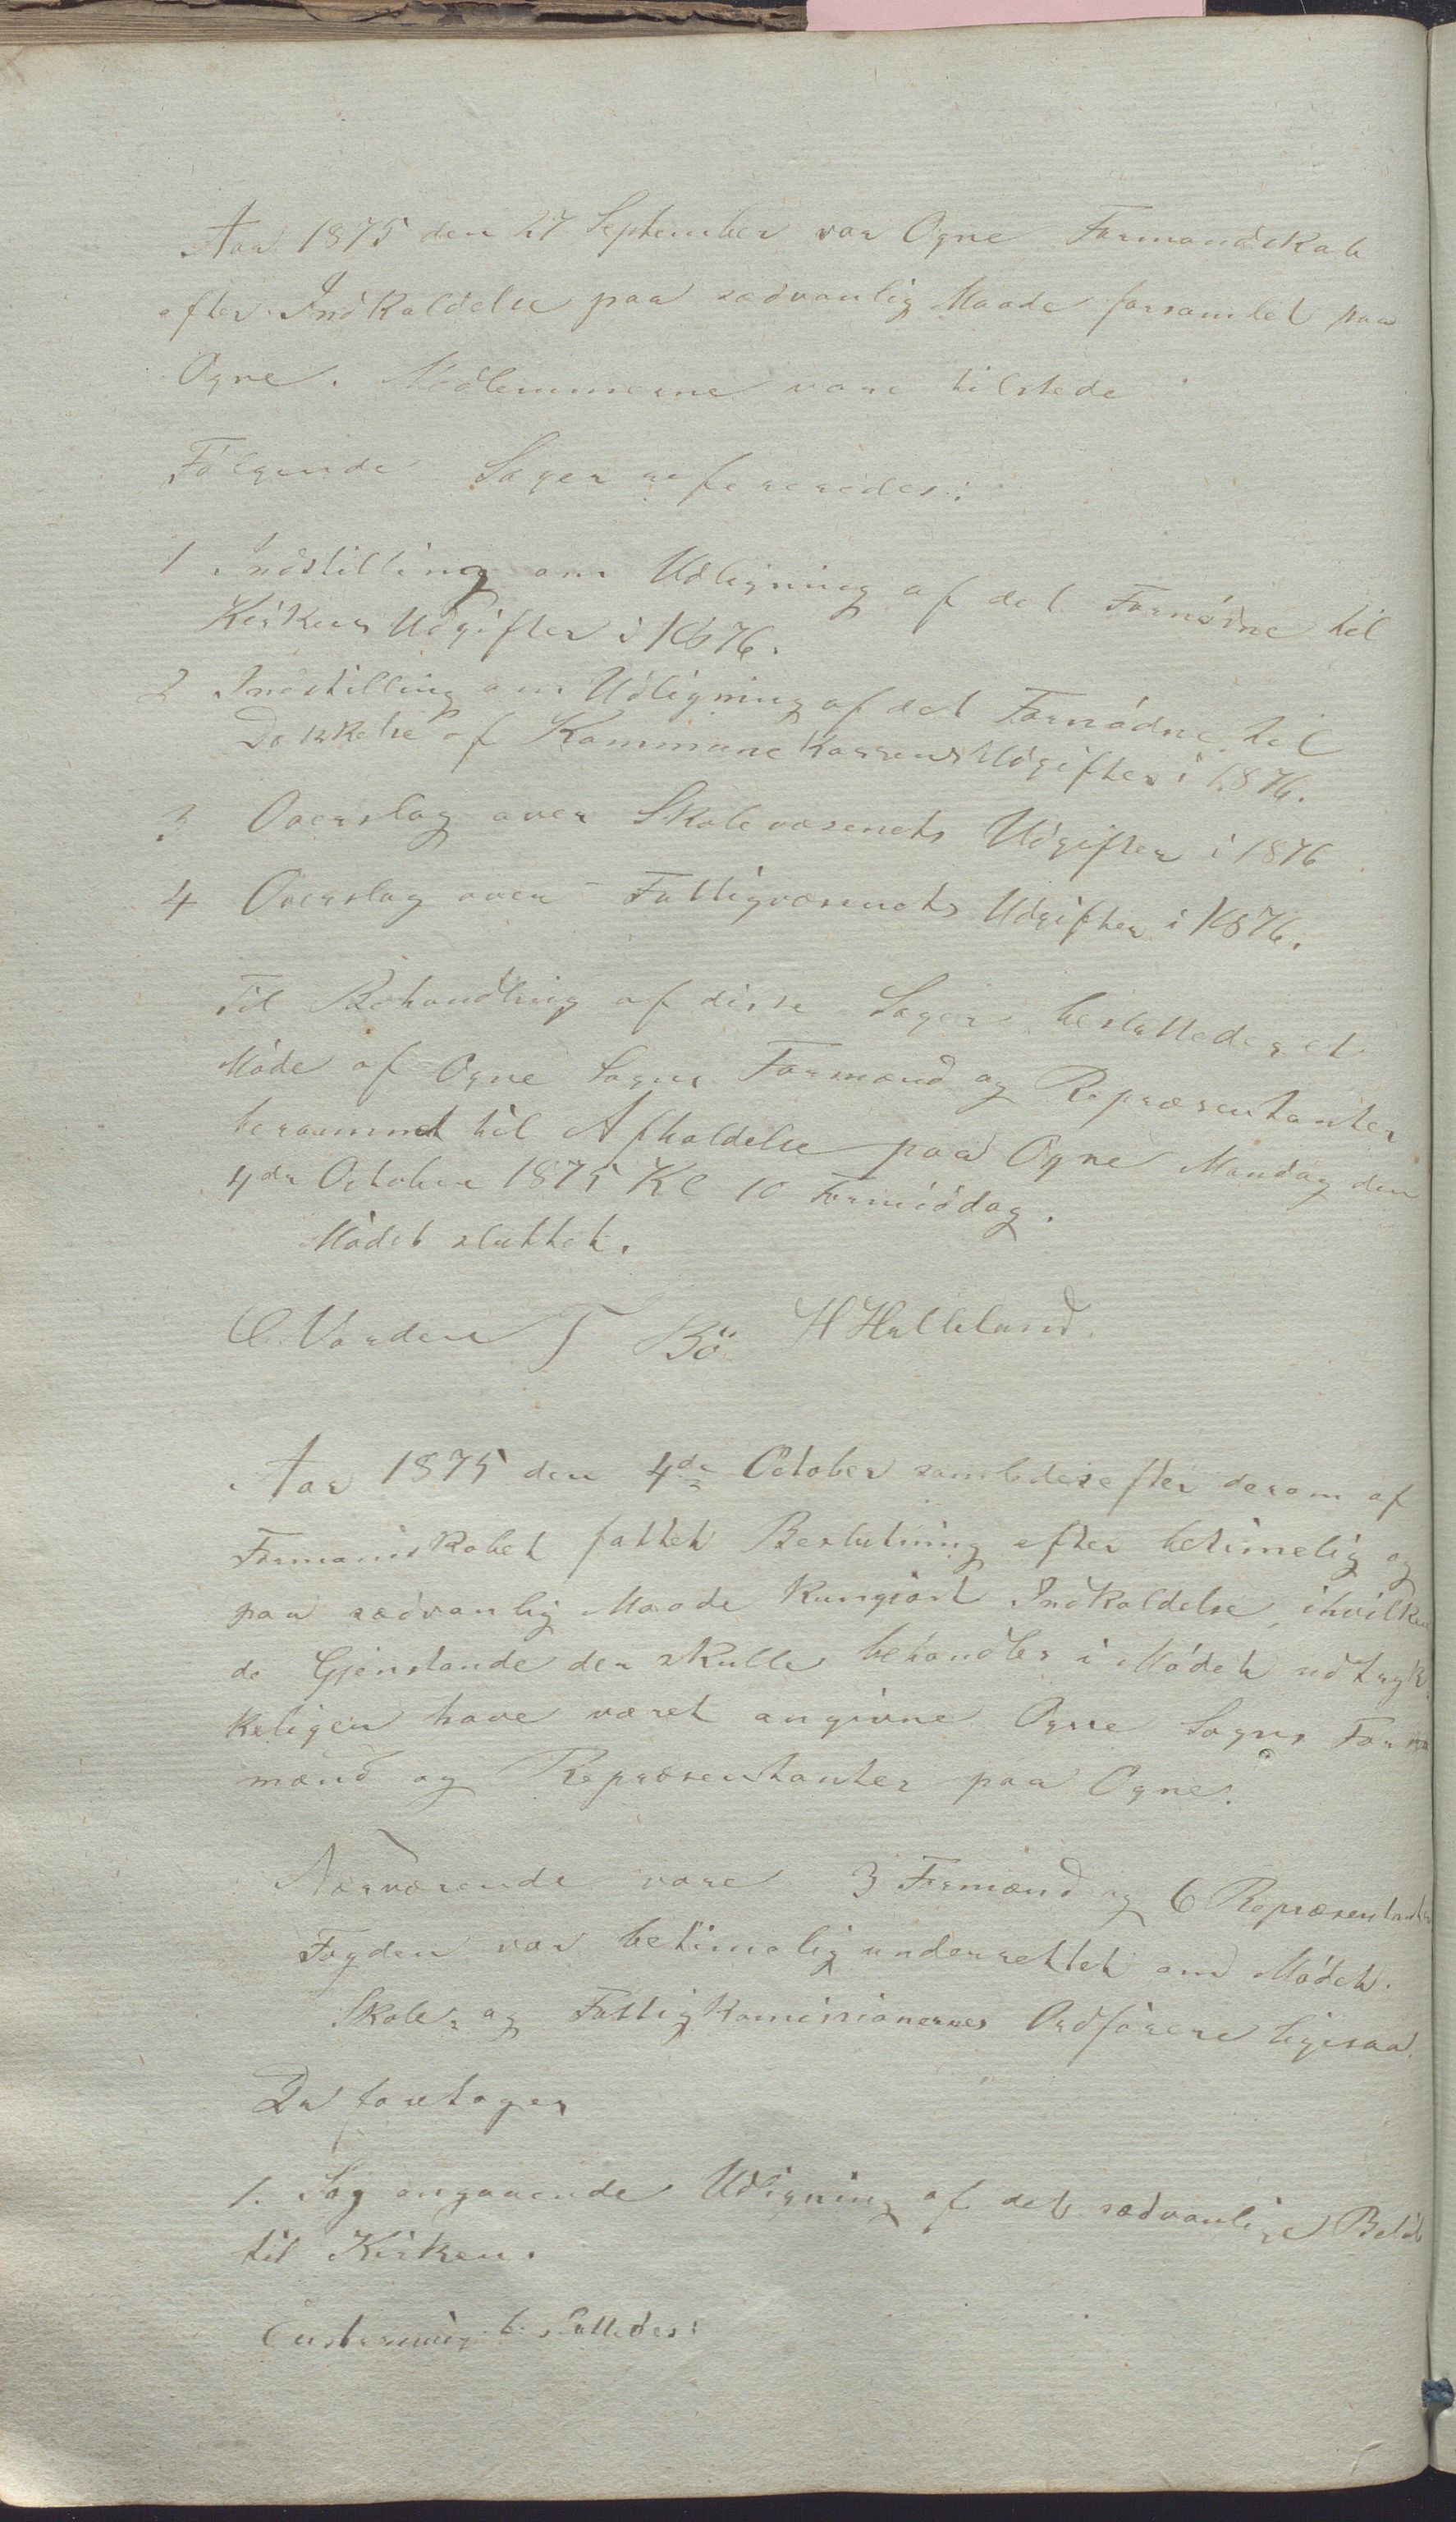 Aar 1875 den 27 September var Ogne Formandskab
efter Indkaldelse paa sædvanlig Maade forsamlet paa
Ogne. Medlemmerne vare tilstede
Følgende Sager refereredes:
1 Indstilling om Udligning af det Fornødne til
Kirkens Udgifter i 1876.
2 Indstilling om Udligning af det Fornødne til
Dækkelse af Kommunekassens Udgifter i 1876.
3 Overslag over Skolevæsenets Udgifter i 1876
4 Overslag over Fattigvæsenets Udgifter i 1876.
Til Behandling af disse Sager besluttedes et
Møde af Ogne Sogns Formænd og Repræsentanter
berammet til Afholdelse paa Ogne Mandag den
4de October 1875 Kl 10 Formiddag.
Mødet sluttet.
C. Varden T Bö H Helleland.
Aar 1875 den 4de October samledes efter derom af
Formandskabet fattet Beslutning efter betimelig og
paa sædvanlig Maade kungjort Indkaldelse, ihvilken
de Gjenstande der skulle behandles i Mødet udtryk
keligen have været angivne Ogne Sogns For
mænd og Repræsentanter paa Ogne.
Nærværende vare 3 Formænd og 6 Repræsentanter
Fogden var betimelig underrettet om Mødet.
Skole- og Fattigkomissionernes Ordførere ligesaa.
Da foretoges
1. Sag angaaende Udligning af det sædvanlige Beløb
til Kirken.
Enstemmig besluttedes: